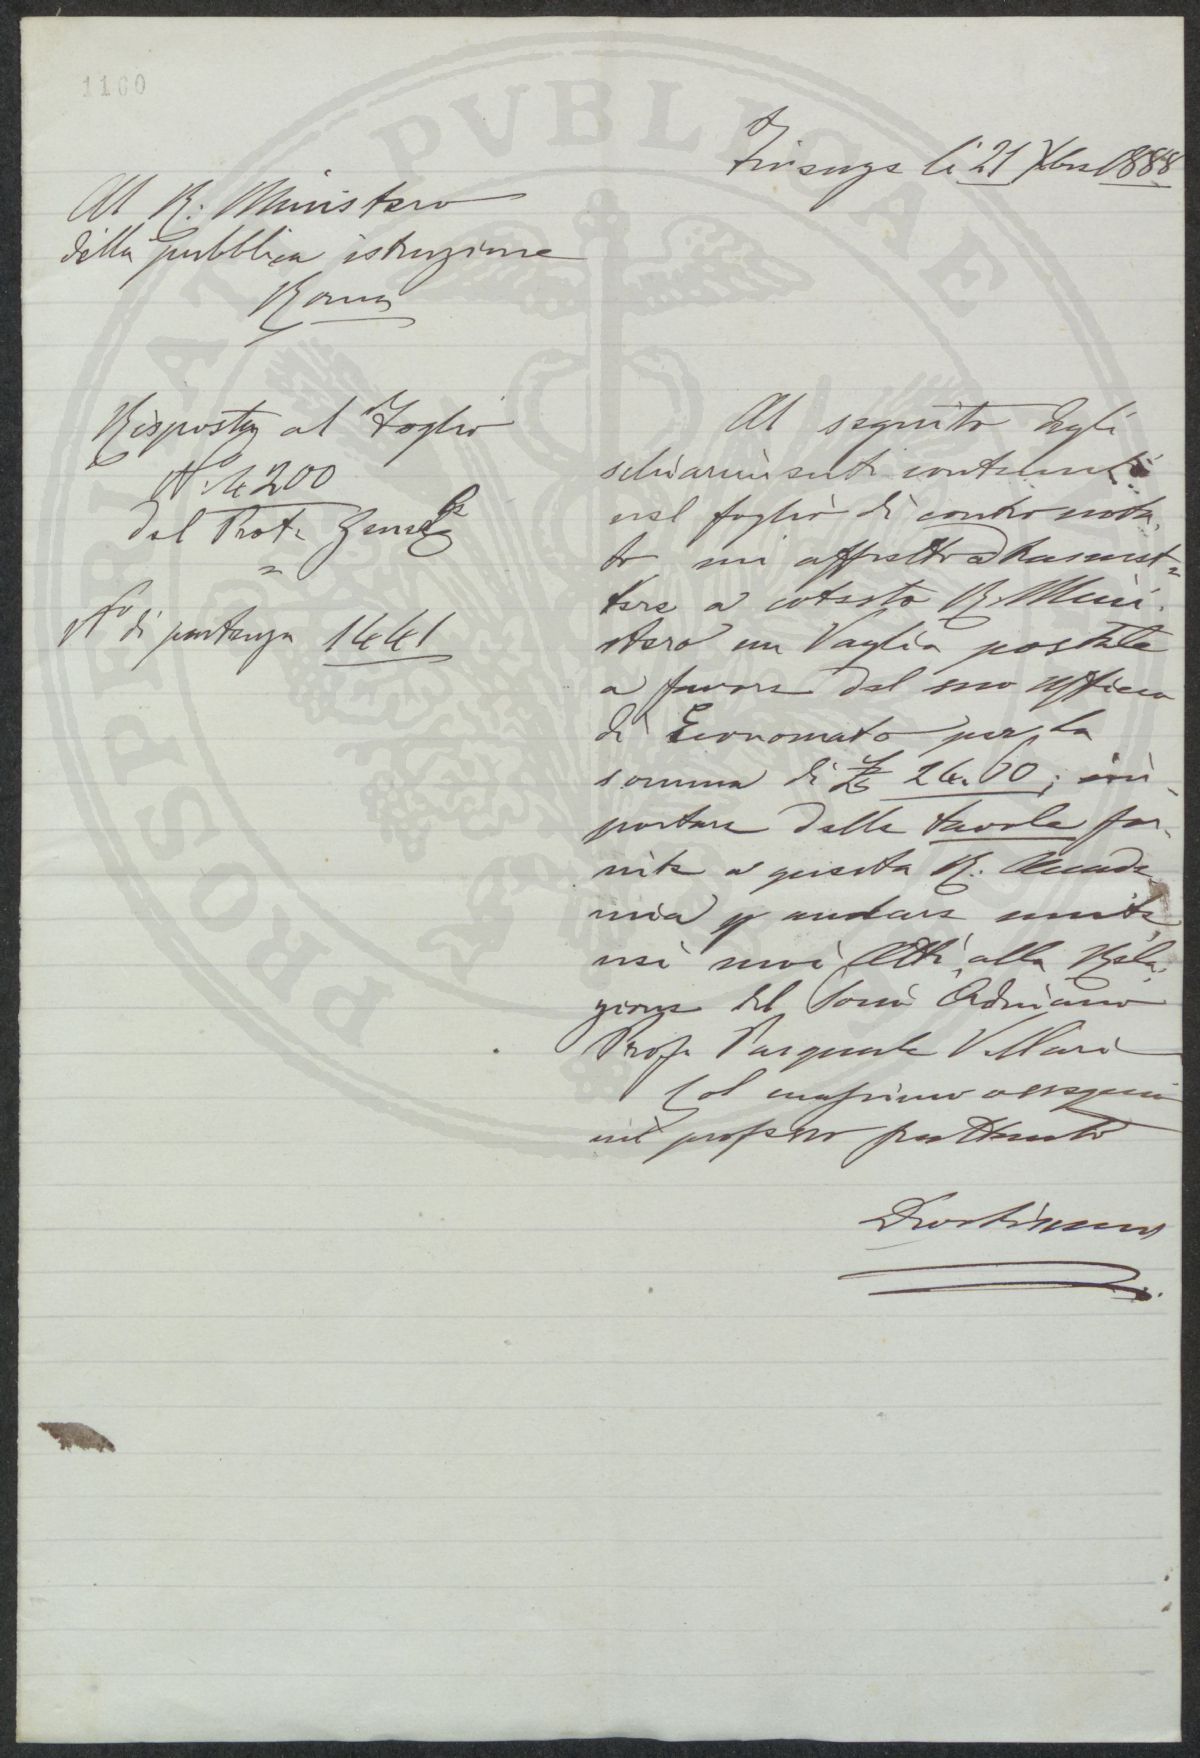 1160
Firenze li 21 Xbre 1888
Al R. Ministero
della pubblica istruzione
Roma
Risposta al Foglio
N. 4200
del Prot. Gen.le
N.o di partenza 1441
Al seguito degli
schiarimenti contenuti
nel foglio di contronota,
to mi affretto a trasmet=
tere a cotesto R. Mini,
stero un Vaglia postale
a favore del suo Ufficio
di Economato per la
somma di £ 24.00; im,
portare delle tavole for,
nite a questa R. Accade,
mia p andare unite
nei suoi Atti alla Rela,
zione del Socio Ordinario
Prof. Pasquale Villari
Col massimo ossequio
mi professo frattanto
PROSPERITAT PVBLICAE